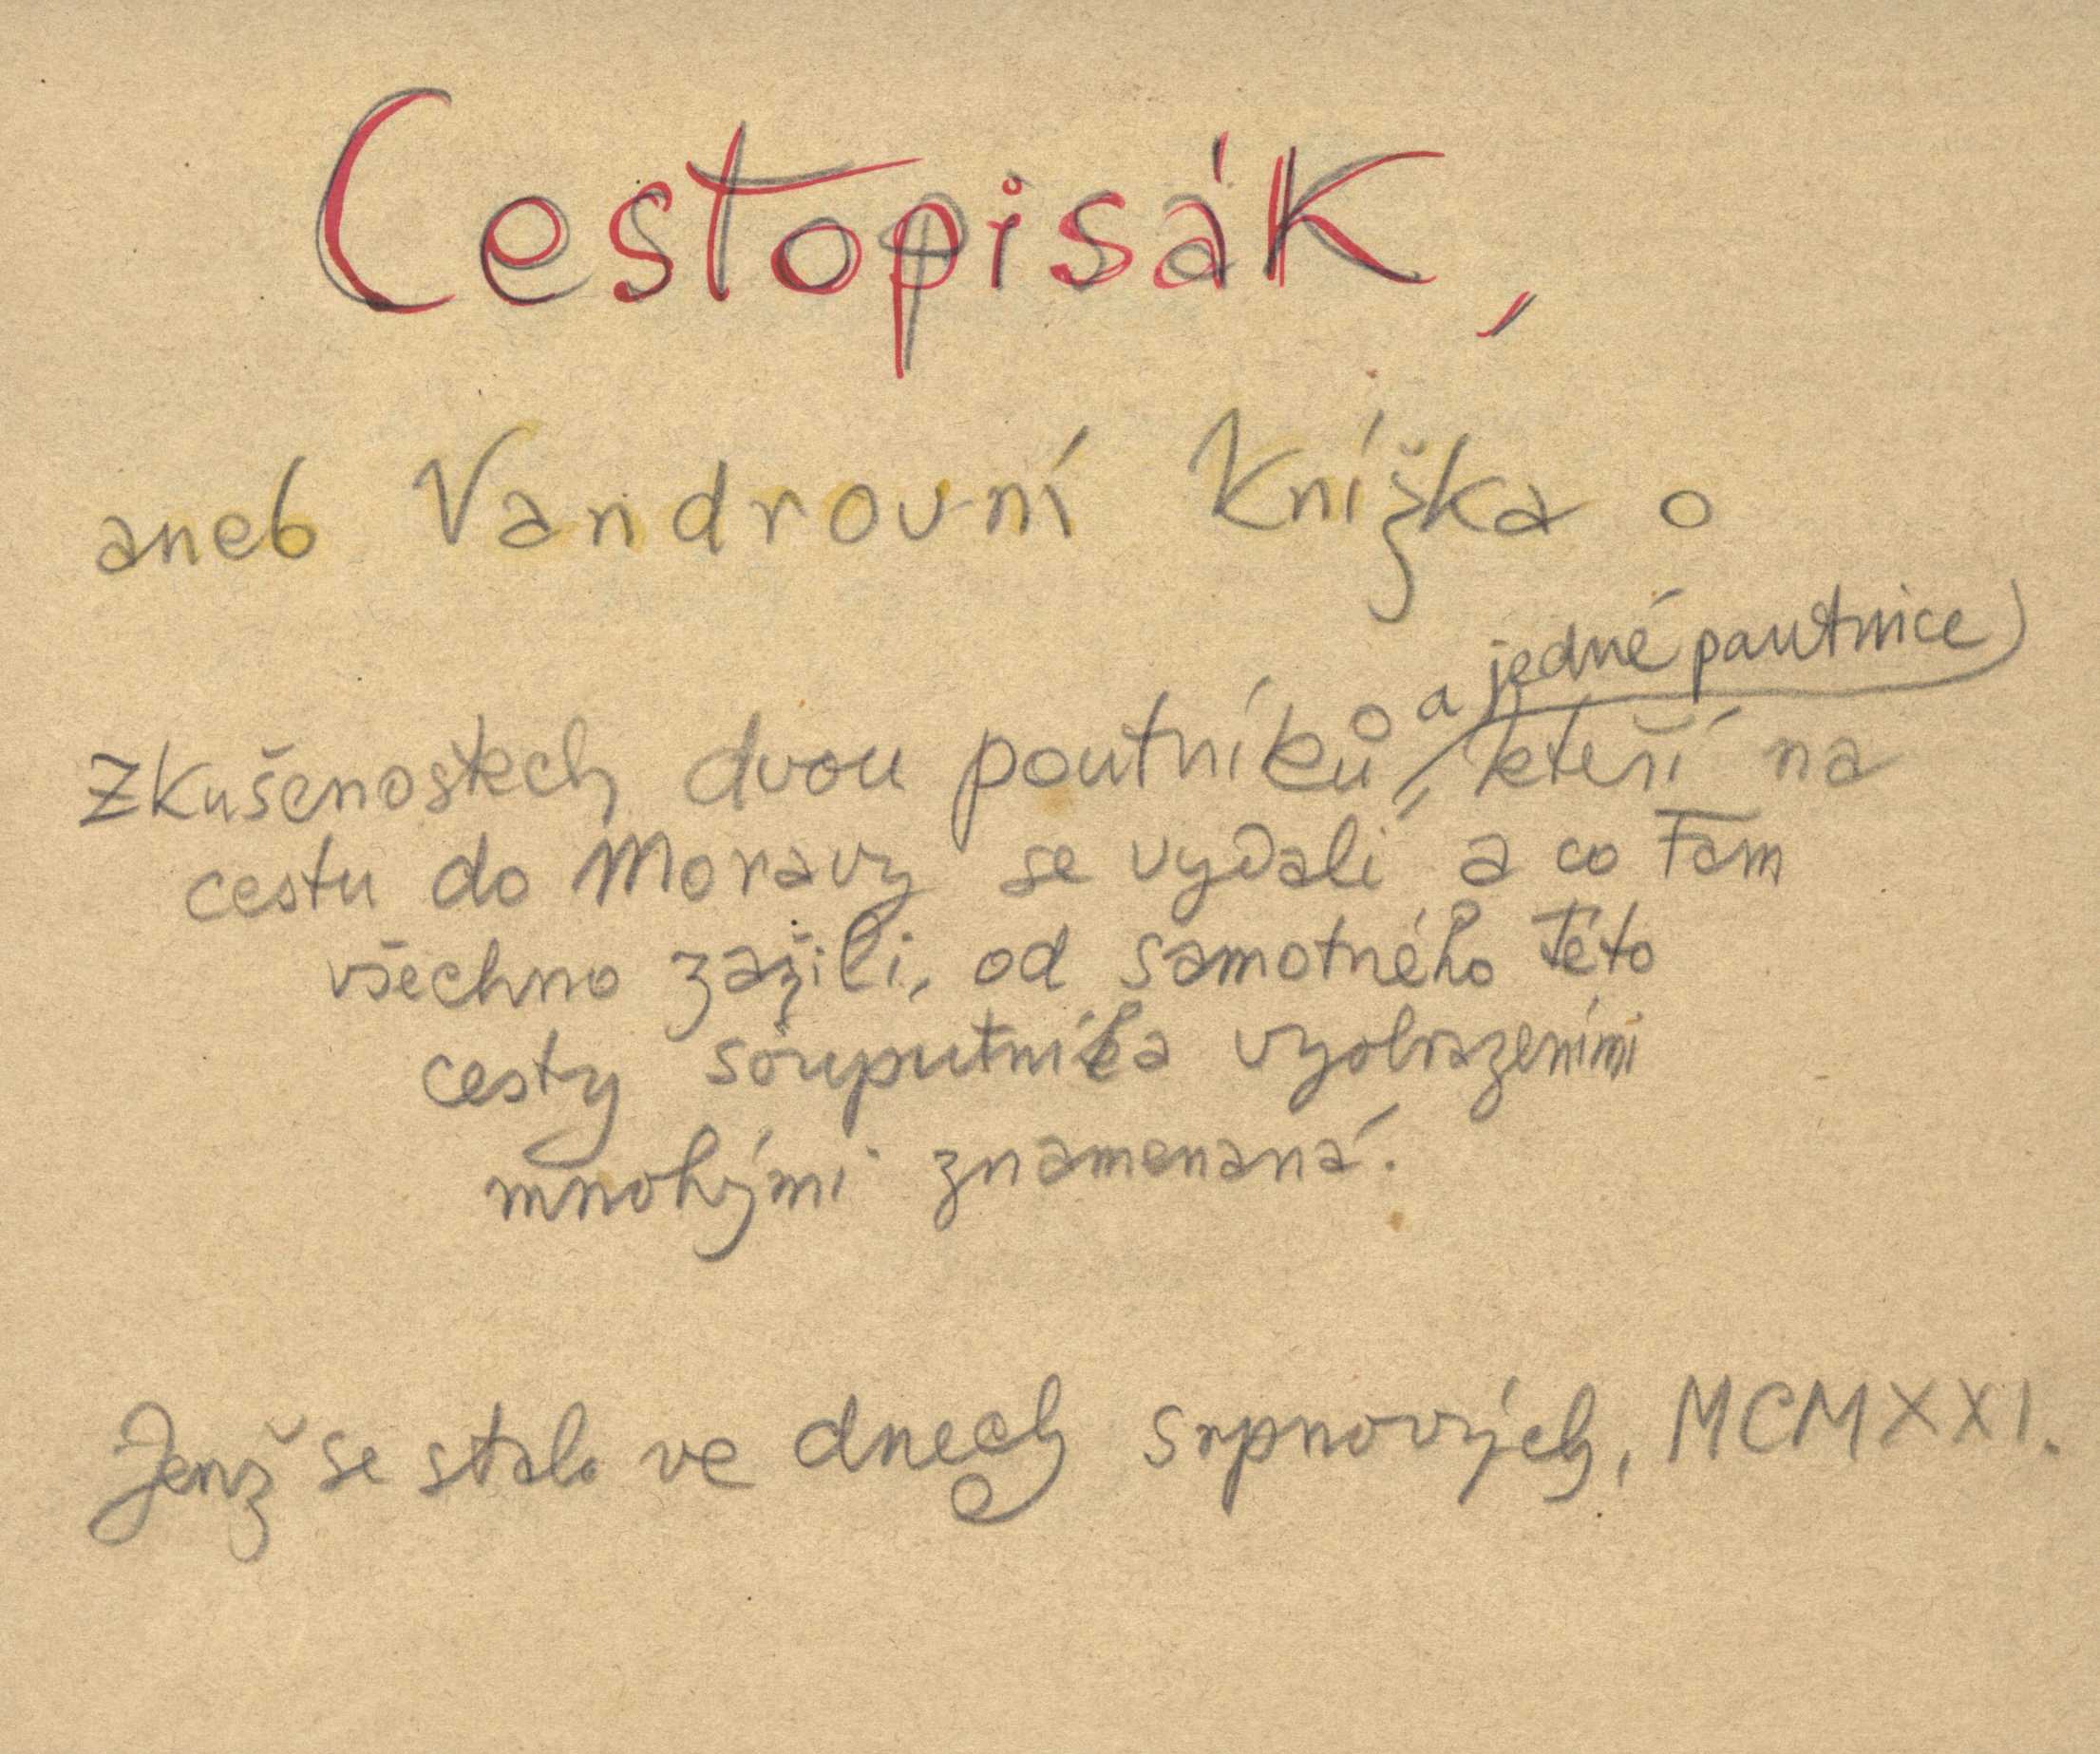 Cestopisák,
aneb Vandrovní Knížka o
a jedné pautnice
zkušenostech dvou poutníků, kteří na
cestu do Moravy se vydali a co tam
všechno zažili, od samotného této
cesty souputníka vyobrazeními
mnohými znamenaná.
Jenž se stalo ve dnech srpnových, MCMXXI.